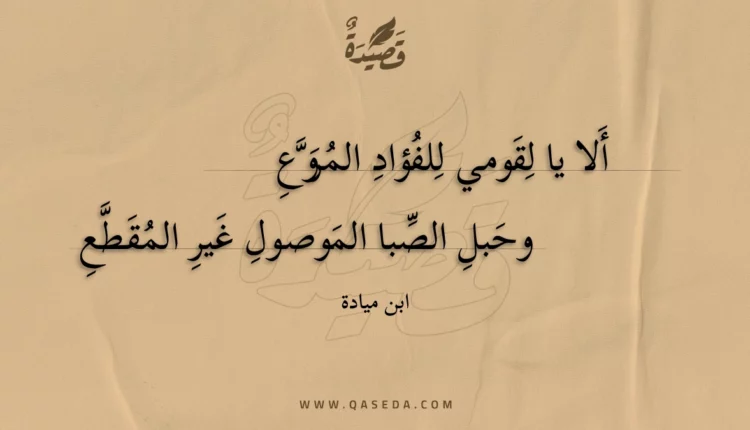 قَصِيدَةٌ
أَلا يا لِقَومي لِلفُؤادِ المُوَرَّعِ
وحَبلِ الصِّبا المَوصولِ غَيرِ المُقَطَّعِ
ابن ميادة
WWW.QASEDA.COM